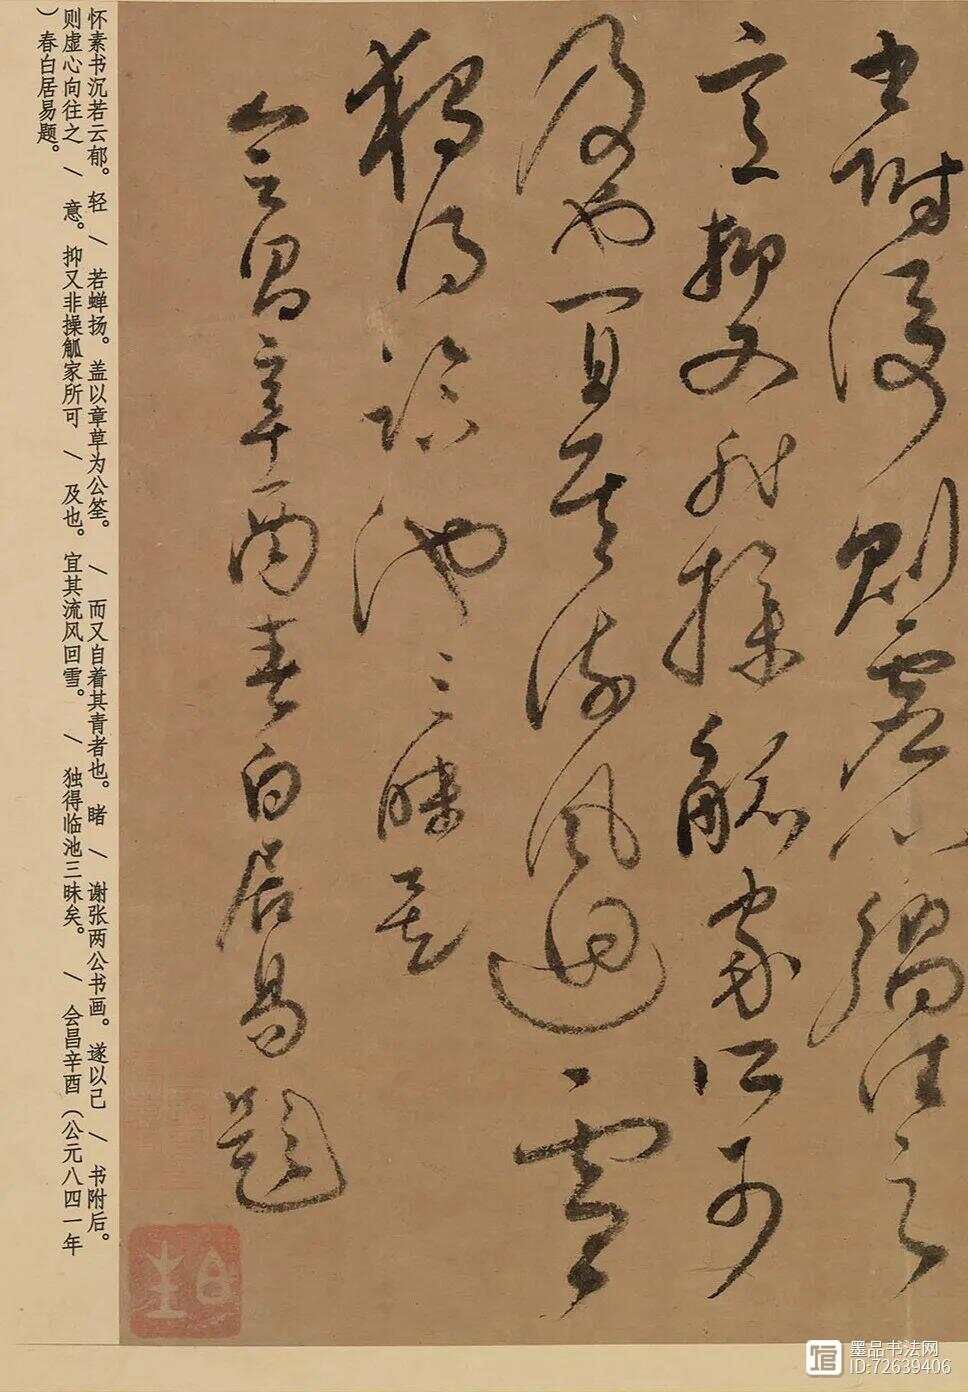 書附後則虛心嚮往之
意抑又非操觚家所可
及也宜其流風迴雪
獨得臨池三昧矣
會昌辛酉春白居易題
怀素书沉若云郁。轻 \ 若蝉扬。盖以章草为公筌。 \ 而又自着其青者也。睹 \ 谢张两公书画。遂以己 \ 书附后。
则虚心向往之 \ 意。抑又非操觚家所可 \ 及也。宜其流风回雪。 \ 独得临池三昧矣。 \ 会昌辛酉（公元八四一年
）春白居易题。
墨品书法网
ID:72639406